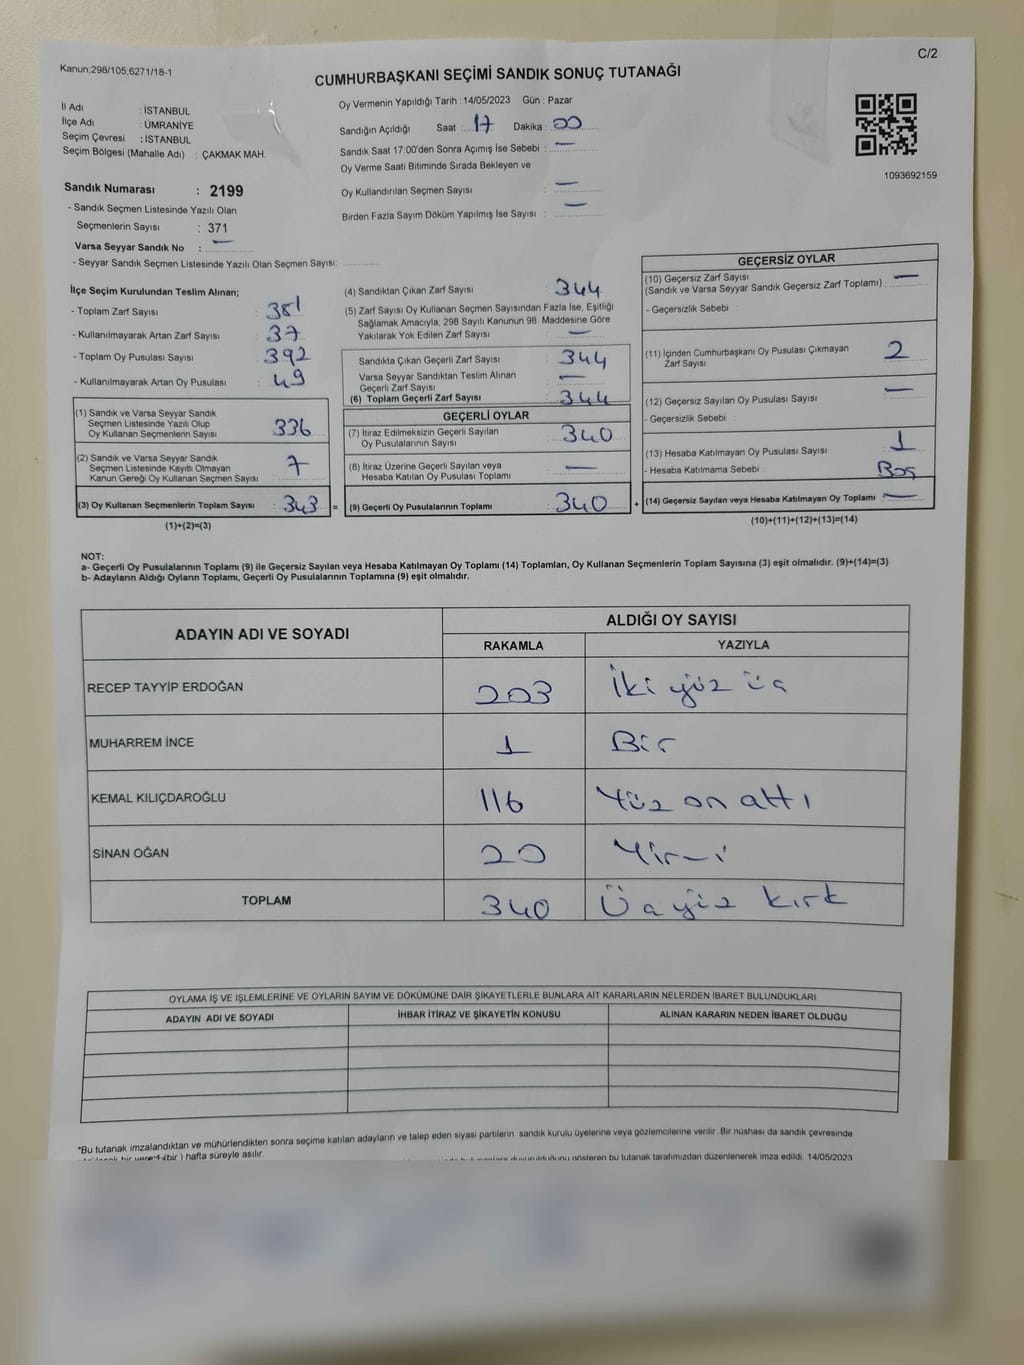 Kanun;298/105;6271/18-1
C/2
CUMHURBAŞKANI SEÇİMİ SANDIK SONUÇ TUTANAĞI
İl Adı : İSTANBUL
İlçe Adı : ÜMRANİYE
Seçim Çevresi : İSTANBUL
Seçim Bölgesi (Mahalle Adı) : ÇAKMAK MAH.
Sandık Numarası : 2199
- Sandık Seçmen Listesinde Yazılı Olan
Seçmenlerin Sayısı : 371
Varsa Seyyar Sandık No : —
- Seyyar Sandık Seçmen Listesinde Yazılı Olan Seçmen Sayısı:
Oy Vermenin Yapıldığı Tarih :14/05/2023 Gün : Pazar
Sandığın Açıldığı Saat : 17 Dakika : 00
Sandık Saat 17:00'den Sonra Açımış İse Sebebi : —
Oy Verme Saati Bitiminde Sırada Bekleyen ve
Oy Kullandırılan Seçmen Sayısı : —
Birden Fazla Sayım Döküm Yapılmış İse Sayısı : —
1093692159
İlçe Seçim Kurulundan Teslim Alınan;
- Toplam Zarf Sayısı : 381
- Kullanılmayarak Artan Zarf Sayısı : 37
- Toplam Oy Pusulası Sayısı : 392
- Kullanılmayarak Artan Oy Pusulası : 49
(1) Sandık ve Varsa Seyyar Sandık
Seçmen Listesinde Yazılı Olup
Oy Kullanan Seçmenlerin Sayısı : 336
(2) Sandık ve Varsa Seyyar Sandık
Seçmen Listesinde Kayıtlı Olmayan
Kanun Gereği Oy Kullanan Seçmen Sayısı : 7
(3) Oy Kullanan Seçmenlerin Toplam Sayısı : 343
(1)+(2)=(3)
(4) Sandıktan Çıkan Zarf Sayısı : 344
(5) Zarf Sayısı Oy Kullanan Seçmen Sayısından Fazla İse, Eşitliği
Sağlamak Amacıyla, 298 Sayılı Kanunun 98. Maddesine Göre
Yakılarak Yok Edilen Zarf Sayısı : —
Sandıkta Çıkan Geçerli Zarf Sayısı : 344
Varsa Seyyar Sandıktan Teslim Alınan
Geçerli Zarf Sayısı : —
(6) Toplam Geçerli Zarf Sayısı : 344
GEÇERLİ OYLAR
(7) İtiraz Edilmeksizin Geçerli Sayılan
Oy Pusulalarının Sayısı : 340
(8) İtiraz Üzerine Geçerli Sayılan veya
Hesaba Katılan Oy Pusulaları Toplamı : —
= (9) Geçerli Oy Pusulalarının Toplamı : 340
GEÇERSİZ OYLAR
(10) Geçersiz Zarf Sayısı
(Sandık ve Varsa Seyyar Sandık Geçersiz Zarf Toplamı) : —
- Geçersizlik Sebebi :
(11) İçinden Cumhurbaşkanı Oy Pusulası Çıkmayan
Zarf Sayısı : 2
(12) Geçersiz Sayılan Oy Pusulası Sayısı : —
- Geçersizlik Sebebi :
(13) Hesaba Katılmayan Oy Pusulası Sayısı : 1
- Hesaba Katılmama Sebebi : Boş
+ (14) Geçersiz Sayılan veya Hesaba Katılmayan Oy Toplamı : —
(10)+(11)+(12)+(13)=(14)
NOT:
a- Geçerli Oy Pusulalarının Toplamı (9) ile Geçersiz Sayılan veya Hesaba Katılmayan Oy Toplamı (14) Toplamları, Oy Kullanan Seçmenlerin Toplam Sayısına (3) eşit olmalıdır. (9)+(14)=(3)
b- Adayların Aldığı Oyların Toplamı, Geçerli Oy Pusulalarının Toplamına (9) eşit olmalıdır.
ADAYIN ADI VE SOYADI
ALDIĞI OY SAYISI
RAKAMLA YAZIYLA
RECEP TAYYİP ERDOĞAN 203 İki yüz üç
MUHARREM İNCE 1 Bir
KEMAL KILIÇDAROĞLU 116 Yüz on altı
SİNAN OĞAN 20 Yirmi
TOPLAM 340 Üç yüz kırk
OYLAMA İŞ VE İŞLEMLERİNE VE OYLARIN SAYIM VE DÖKÜMÜNE DAİR ŞİKAYETLERLE BUNLARA AİT KARARLARIN NELERDEN İBARET BULUNDUKLARI
ADAYIN ADI VE SOYADI İHBAR İTİRAZ VE ŞİKAYETİN KONUSU ALINAN KARARIN NEDEN İBARET OLDUĞU
*Bu tutanak imzalandıktan ve mühürlendikten sonra seçime katılan adayların ve talep eden siyasi partilerin sandık kurulu üyelerine veya gözlemcilerine verilir. Bir nüshası da sandık çevresinde
(bir ) hafta süreyle asılır.
gösteren bu tutanak tarafımızdan düzenlenerek imza edildi. 14/05/2023